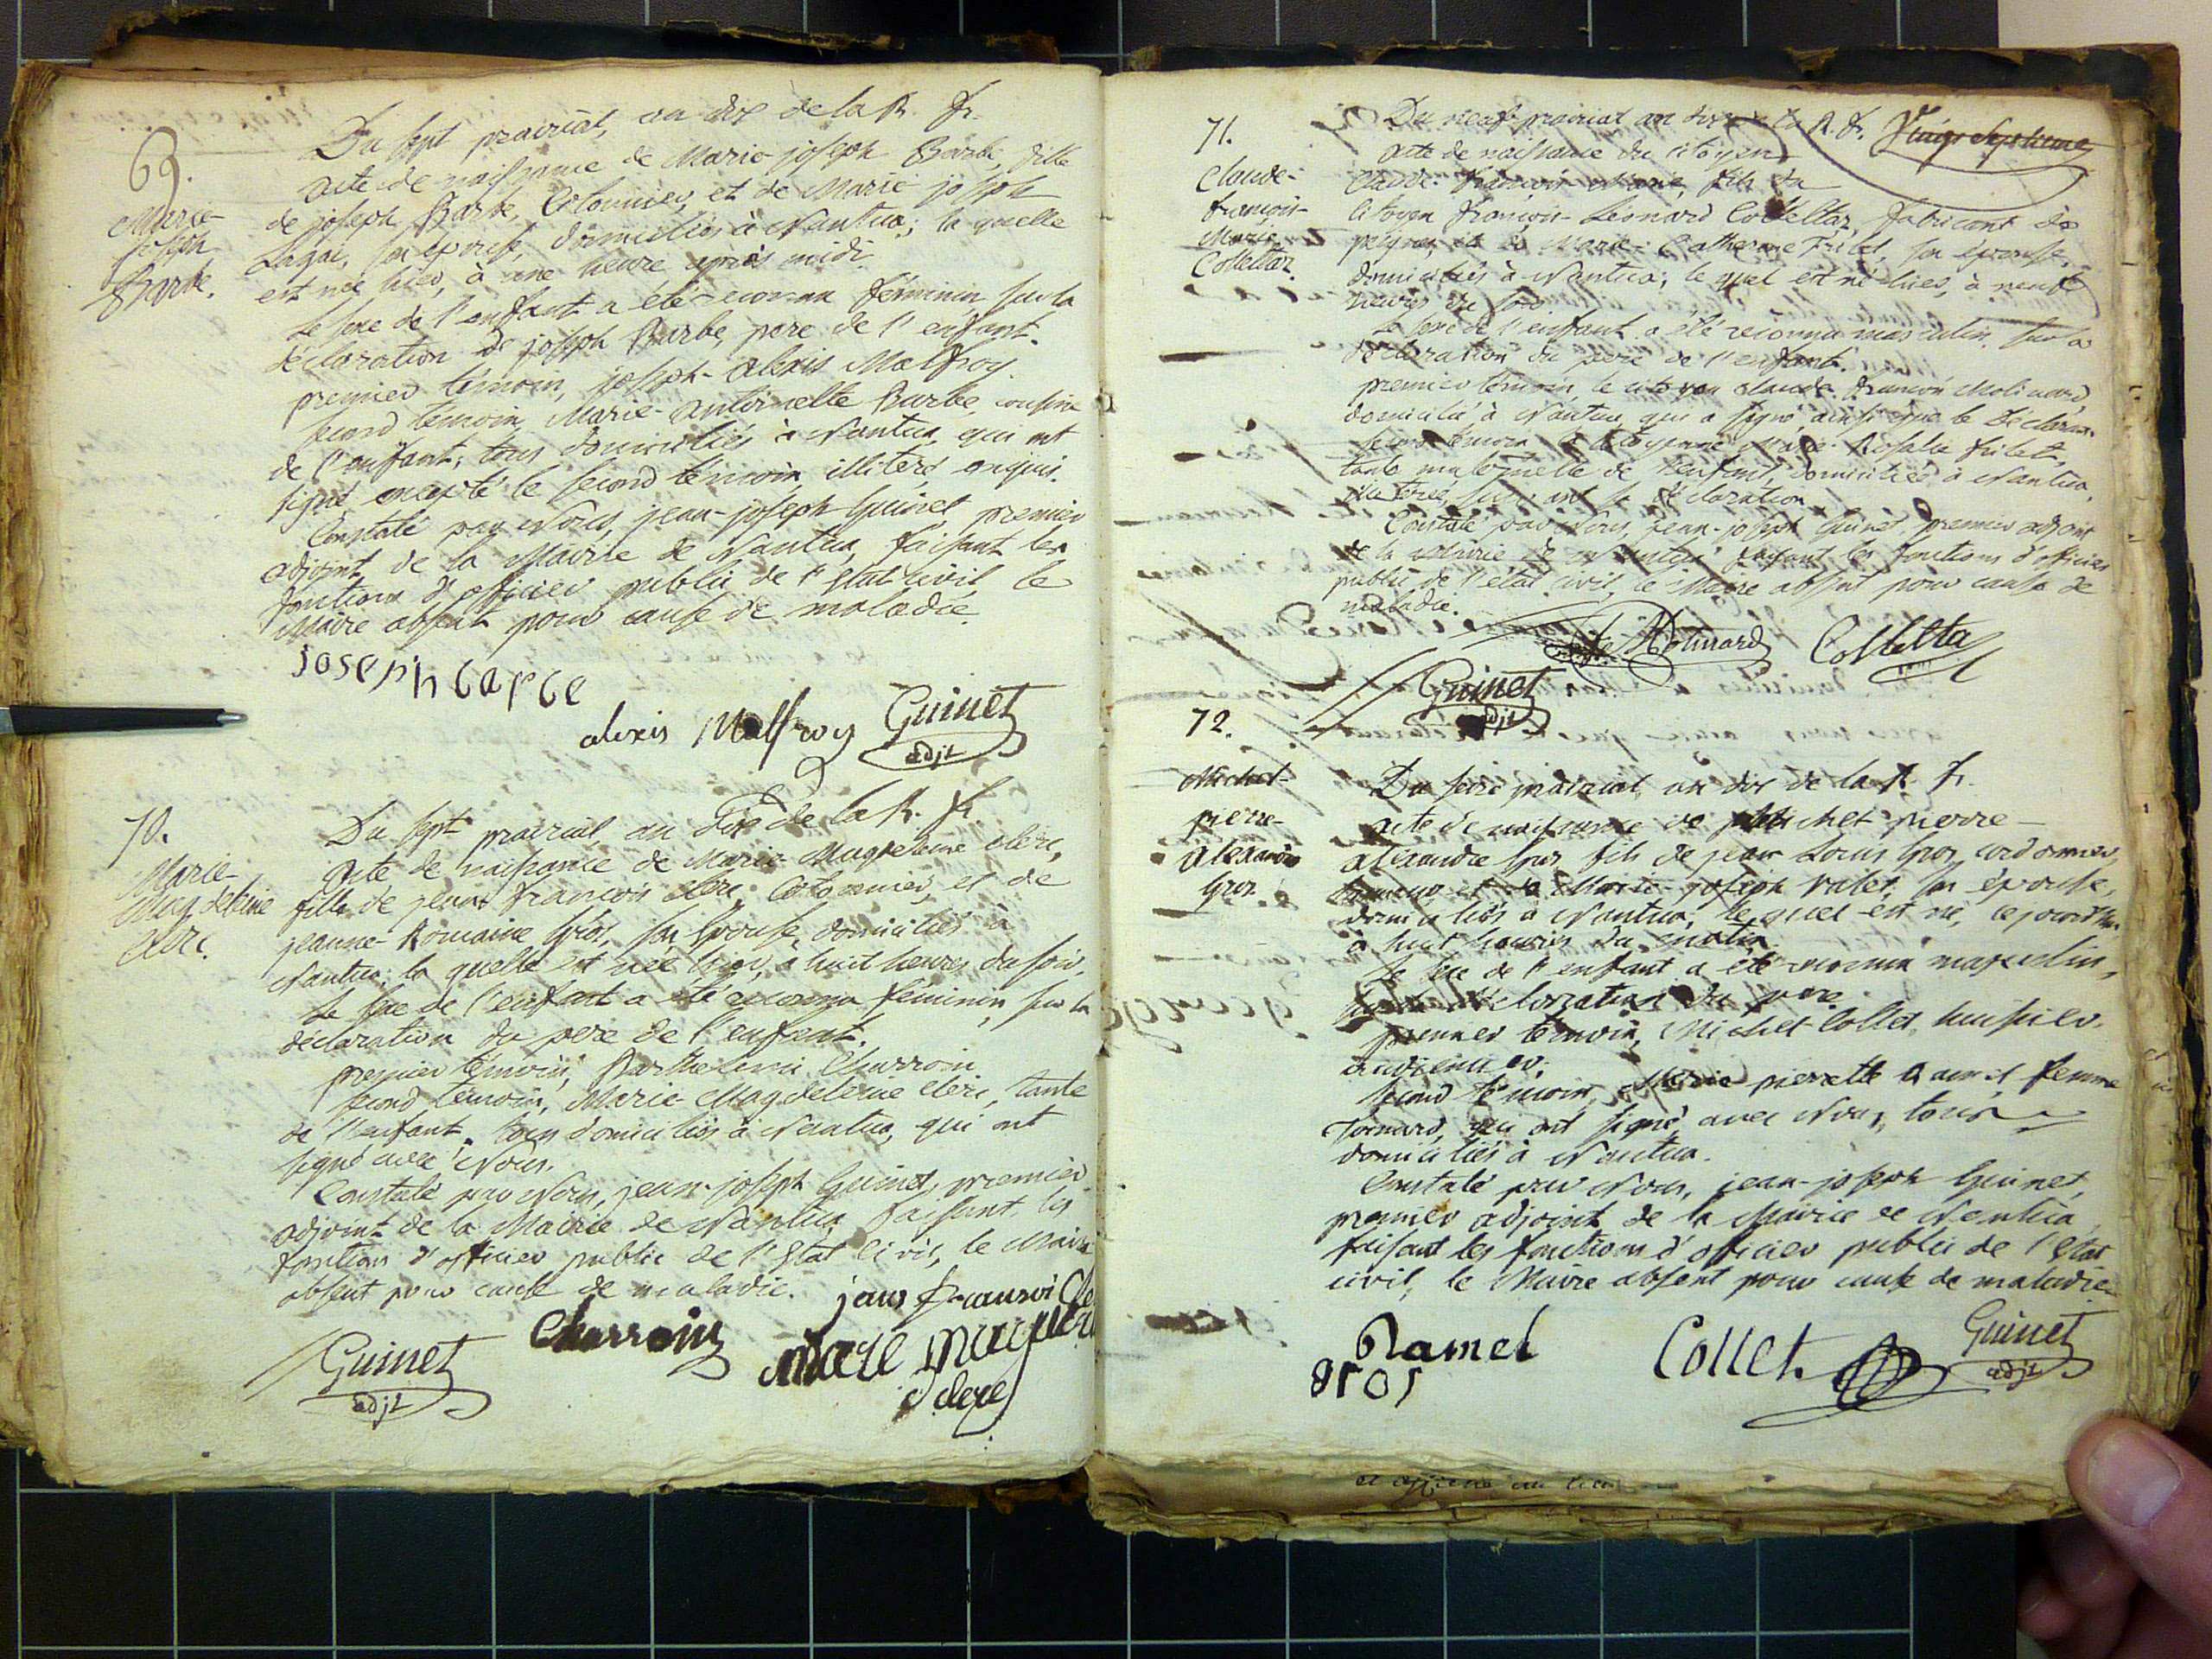 69.
Marie-
joseph
Barbe.
Du sept prairial, an dix de la R. fr.
Acte de naissance de Marie-joseph Barbe, fille
de joseph Barbe, Cotonnier, et de Marie joseph
son épouse, domiciliés à Nantua; la quelle
est née hier, à une heure après midi.
Le sexe de l'enfant a été reconnu féminin, sur la
déclaration de joseph Barbe, pere de l'enfant.
premier témoin, joseph-alexis Malfroy.
second témoin, Marie-antoinette Barbe, cousine
de l'enfant; tous domiciliés à Nantua, qui ont
signé excepté le second témoin, illiteré, enquis.
Constaté par Nous, jean-joseph Guinet, premier
adjoint de la Mairie de Nantua, faisant les
fonctions d'officier public de l'Etat civil, le
Maire absent pour cause de maladie.
joseph barbe
alexis Malfroy Guinet
adjt
70.
Marie-
Magdeleine
Clerc.
Du sept prairial, an Dix de la R. fr.
Acte de naissance de Marie-Magdeleine clerc,
fille de jean françois clerc, Cotonnier, et de
jeanne-Romaine Gros, son Epouse, domiciliés à
Nantua; la quelle est née hier, à huit heures du soir.
Le sexe de l'enfant a été reconnu féminin, sur la
déclaration du pere de l'enfant.
premier témoin, Barthelemi Charroin
second témoin, Marie Magdeleine clerc, tante
de l'enfant, tous domiciliés à Nantua, qui ont
signé avec Nous.
Constaté par Nous, jean-joseph Guinet, premier
adjoint de la Mairie de Nantua, faisant les
fonctions d'officier public de l'Etat civil, le Maire
absent pour cause de maladie.
Charroin
Guinet
adjt
71.
Claude-
françois-
Marie
Collettaz
Vingt Septieme
Du neuf prairial an dix de la R. fr.
Acte de naissance du citoyen
Claude-françois-Marie, fils du
Citoyen françois-Leonard Collettaz, fabricant de
peignes, et de Marie-Catherine Frilet, son épouse,
domiciliés à Nantua; le quel est né hier, à neuf
heures du soir.
Le sexe de l'enfant a été reconnu masculin, sur la
déclaration du pere de l'enfant.
premier témoin, le citoyen claude-françois Molinard
domicilié à Nantua, qui a signé, ainsi que le Déclarant.
second témoin la citoyenne Marie-Rosalie frilet,
tante maternelle de l'enfant, domiciliée à Nantua,
illiterée, suivant sa déclaration.
Constaté par Nous, jean-joseph Guinet, premier adjoint
de la Mairie de Nantua faisant les fonctions d'officier
public de l'état civil, le Maire absent pour cause de
maladie.
Molinard Colletta
Guinet
adjt
72.
Michel-
pierre-
alexandre
Gros
Du seize prairial, an dix de la R. fr.
Acte de naissance de Michel pierre-
alexandre Gros, fils de jean Louis Gros, cordonnier,
et de Marie-joseph son épouse,
domiciliés à Nantua; le quel est né, ce jourd'hui
à huit heures du matin.
Le sexe de l'enfant a été reconnu masculin,
sur la déclaration du pere.
premier témoin, Michel Collet, huissier-
audiencier.
second témoin, Marie-pierrette Ramel femme
qui ont signé avec Nous, tous
domiciliés à Nantua.
Constaté par Nous, jean-joseph Guinet,
premier adjoint de la Mairie de Nantua
faisant les fonctions d'officier public de l'Etat
civil, le Maire absent pour cause de maladie.
Ramel Collet. Guinet
gros adjt